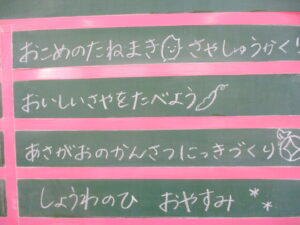 おこめのたねまき さやしゅうかく!
おいしいさやをたべよう
あさがおのかんさつにっきづくり
しょうわのひ おやすみ